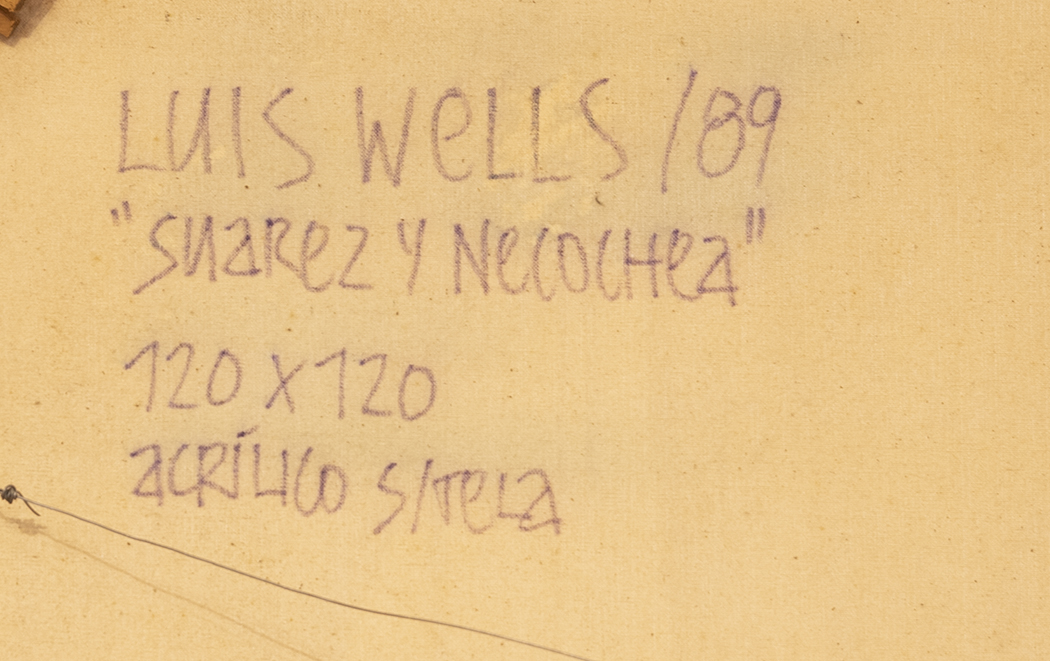 LUIS WELLS /89
"SUAREZ Y NECOCHEA"
120 X 120
ACRÍLICO S/TELA